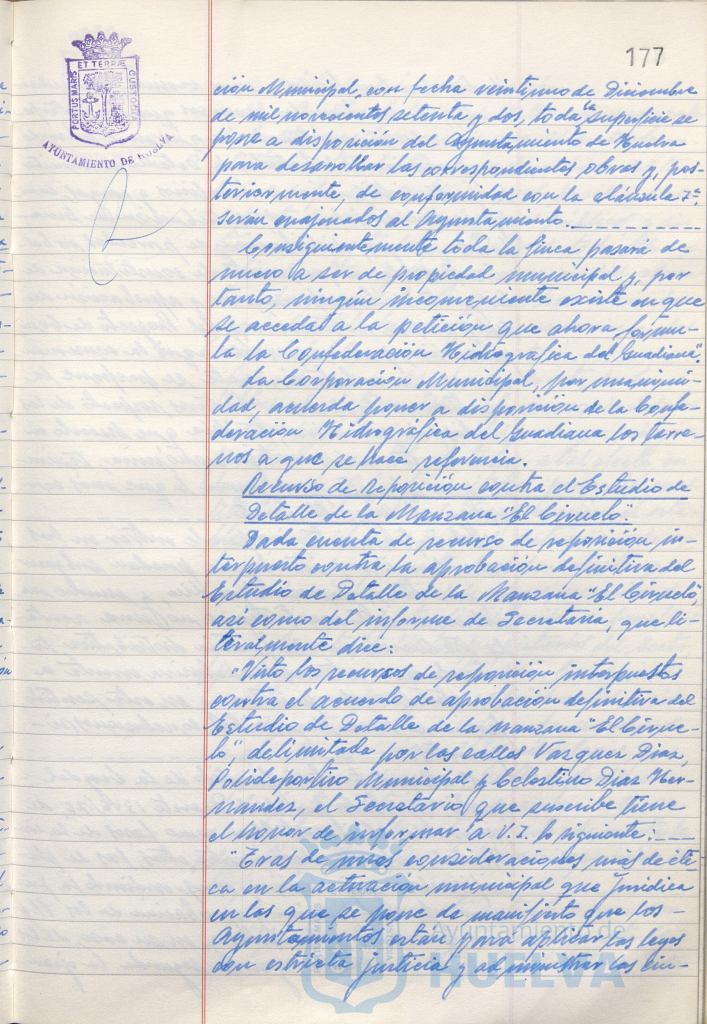 177
PORTUS MARIS ET TERRÆ CUSTODIA
AYUNTAMIENTO DE HUELVA
ción Municipal, con fecha veintiuno de Diciembre
de mil novecientos setenta y dos, toda la superficie se
pone a disposición del Ayuntamiento de Huelva
para desarrollar las correspondientes obras y, pos-
teriormente, de conformidad con la cláusula 7ª
serán enajenados al Ayuntamiento.
Consiguientemente toda la finca pasará de
nuevo a ser de propiedad municipal y, por
tanto, ningún inconveniente existe en que
se acceda a la petición que ahora formu-
la la Confederación Hidrográfica del Guadiana".
La Corporación Municipal, por unanimi-
dad, acuerda poner a disposición de la Confe-
deración Hidrográfica del Guadiana los terre-
nos a que se hace referencia.
Recurso de reposición contra el Estudio de
Detalle de la Manzana "El Ciruelo".
Dada cuenta de recurso de reposición in-
terpuesto contra la aprobación definitiva del
Estudio de Detalle de la Manzana "El Ciruelo",
así como del informe de Secretaría, que li-
teralmente dice:
"Visto los recursos de reposición interpuestos
contra el acuerdo de aprobación definitiva del
Estudio de Detalle de la Manzana "El Cirue-
lo", delimitada por las calles Vazquez Diaz,
Polideportivo Municipal y Celestino Diaz Her-
nandez, el Secretario que suscribe tiene
el honor de informar a V.I. lo siguiente:
"Tras de unas consideraciones más de éti-
ca en la actuación municipal que Jurídica
en las que se pone de manifiesto que los
Ayuntamientos estan para aplicar las leyes
con estricta justicia y administrar los ciu-
Ayuntamiento de
HUELVA